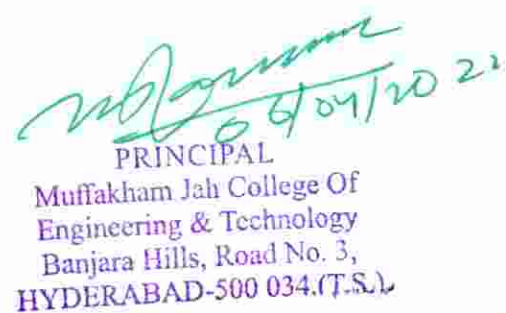 06/04/2022
PRINCIPAL
Muffakham Jah College Of
Engineering & Technology
Banjara Hills, Road No. 3,
HYDERABAD-500 034.(T.S.)